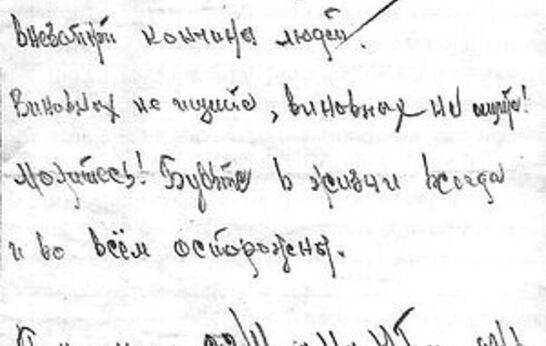 кончина людей
Виновных не ищите, виновных не ищите!
Молитесь! Будьте в жизни всегда
и во всём осторожны.